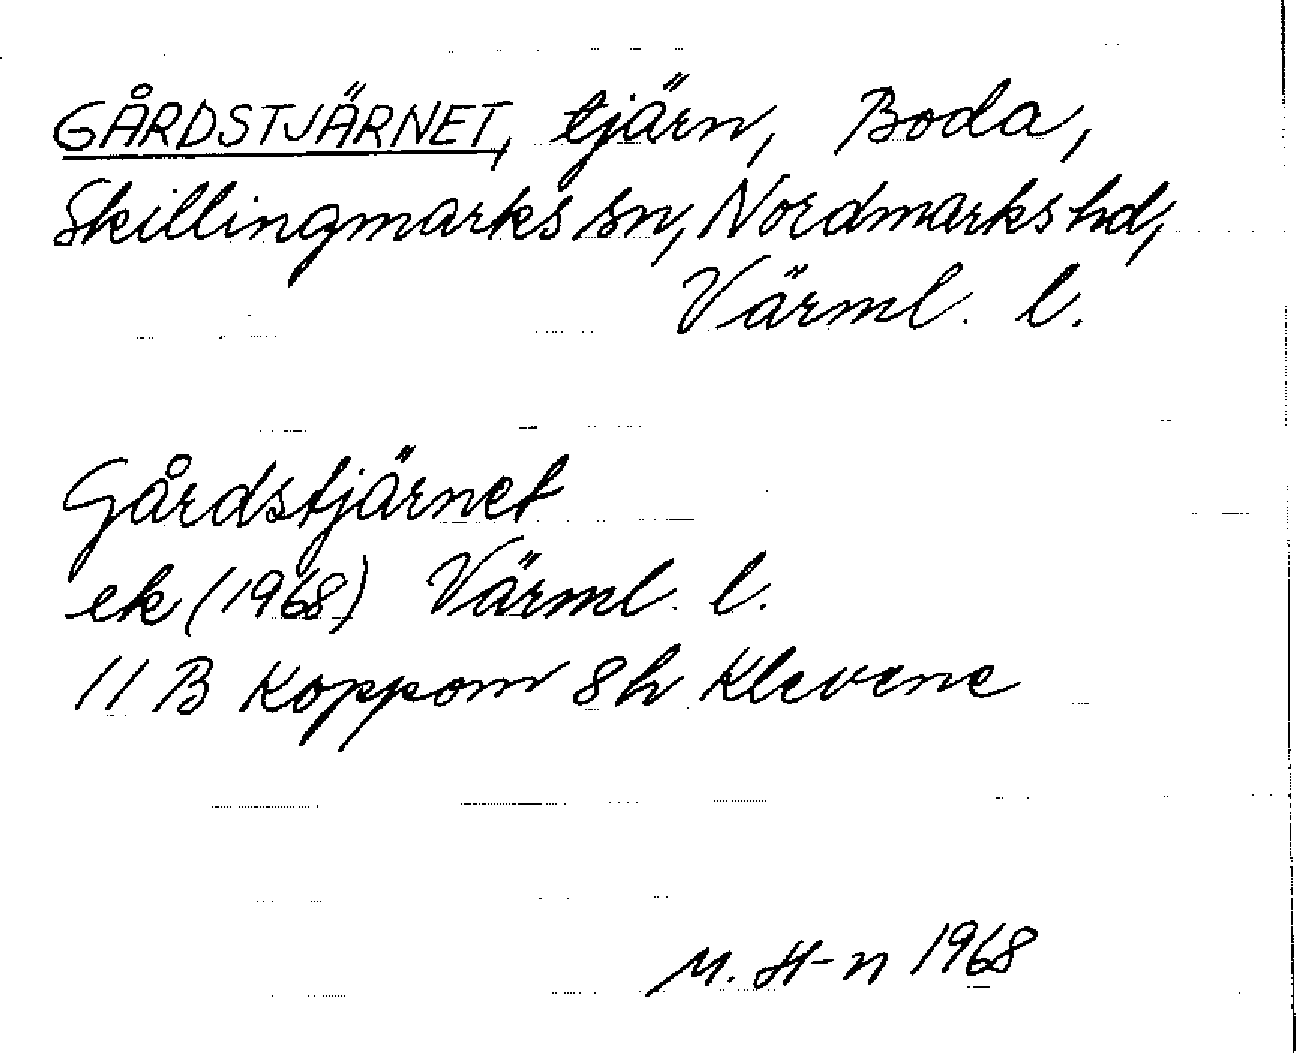 GÅRDSTJÄRNET, tjärn, Boda,
Skillingmarks sn, Nordmarks hd,
Värml. l.
Gårdstjärnet
ek (1968) Värml. l.
11 B Koppom 8h Klevene
M. H-n 1968